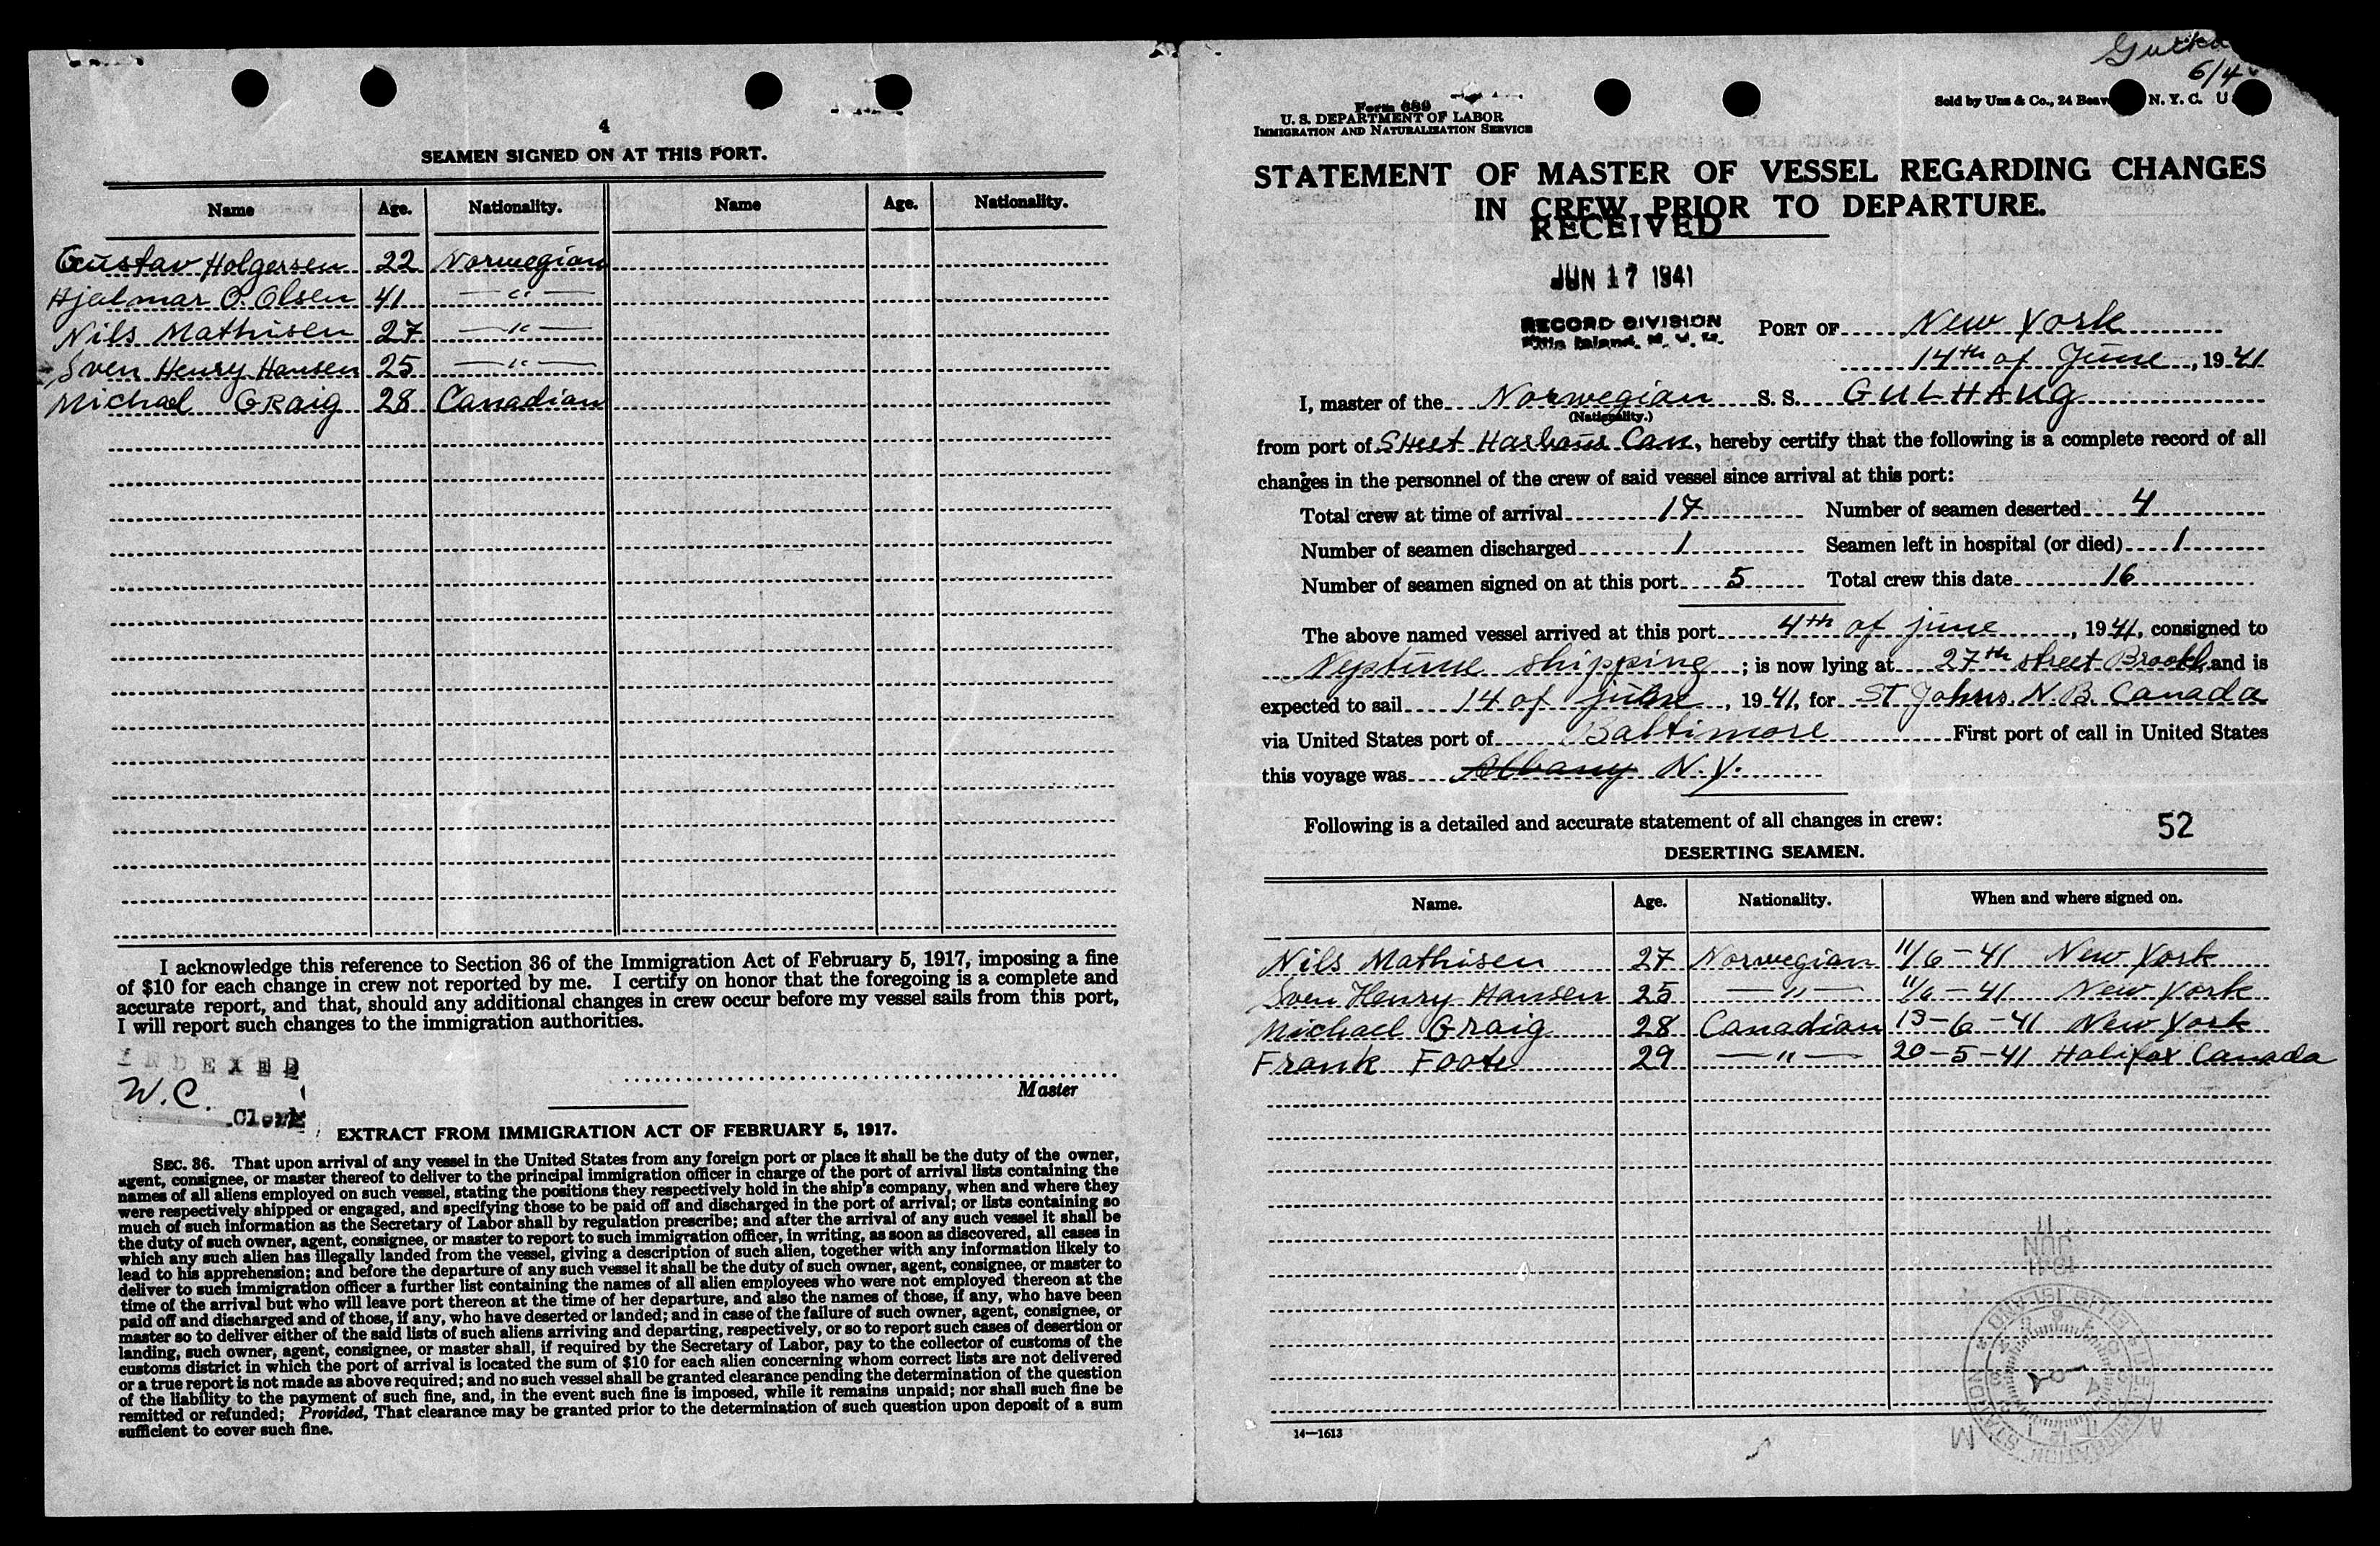 4
SEAMEN SIGNED ON AT THIS PORT.
Name Age. Nationality. Name Age. Nationality.
Gustav Holgersen 22 Norwegian
Hjalmar O. Olsen 41 — " —
Nils Mathisen 27 — " —
Sven Henry Hansen 25 — " —
Michael Graig 28 Canadian
I acknowledge this reference to Section 36 of the Immigration Act of February 5, 1917, imposing a fine
of $10 for each change in crew not reported by me. I certify on honor that the foregoing is a complete and
accurate report, and that, should any additional changes in crew occur before my vessel sails from this port,
I will report such changes to the immigration authorities.
INDEXED
W.C.
Clerk
Master
EXTRACT FROM IMMIGRATION ACT OF FEBRUARY 5, 1917.
SEC. 36. That upon arrival of any vessel in the United States from any foreign port or place it shall be the duty of the owner,
agent, consignee, or master thereof to deliver to the principal immigration officer in charge of the port of arrival lists containing the
names of all aliens employed on such vessel, stating the positions they respectively hold in the ship's company, when and where they
were respectively shipped or engaged, and specifying those to be paid off and discharged in the port of arrival; or lists containing so
much of such information as the Secretary of Labor shall by regulation prescribe; and after the arrival of any such vessel it shall be
the duty of such owner, agent, consignee, or master to report to such immigration officer, in writing, as soon as discovered, all cases in
which any such alien has illegally landed from the vessel, giving a description of such alien, together with any information likely to
lead to his apprehension; and before the departure of any such vessel it shall be the duty of such owner, agent, consignee, or master to
deliver to such immigration officer a further list containing the names of all alien employees who were not employed thereon at the
time of the arrival but who will leave port thereon at the time of her departure, and also the names of those, if any, who have been
paid off and discharged and of those, if any, who have deserted or landed; and in case of the failure of such owner, agent, consignee, or
master so to deliver either of the said lists of such aliens arriving and departing, respectively, or so to report such cases of desertion or
landing, such owner, agent, consignee, or master shall, if required by the Secretary of Labor, pay to the collector of customs of the
customs district in which the port of arrival is located the sum of $10 for each alien concerning whom correct lists are not delivered
or a true report is not made as above required; and no such vessel shall be granted clearance pending the determination of the question
of the liability to the payment of such fine, and, in the event such fine is imposed, while it remains unpaid; nor shall such fine be
remitted or refunded; Provided, That clearance may be granted prior to the determination of such question upon deposit of a sum
sufficient to cover such fine.
6/4
Form 689
U. S. DEPARTMENT OF LABOR
IMMIGRATION AND NATURALIZATION SERVICE
Sold by Unz & Co., 24 Beav N. Y. C. U
STATEMENT OF MASTER OF VESSEL REGARDING CHANGES
IN CREW PRIOR TO DEPARTURE.
RECEIVED
JUN 17 1941
RECORD DIVISION
Ellis Island, N. Y. H.
PORT OF New York
14th of June, 1941
I, master of the Norwegian S. S. GULHAUG
(Nationality.)
from port of Sheet Harbour Can, hereby certify that the following is a complete record of all
changes in the personnel of the crew of said vessel since arrival at this port:
Total crew at time of arrival 17 Number of seamen deserted 4
Number of seamen discharged 1 Seamen left in hospital (or died) 1
Number of seamen signed on at this port 5 Total crew this date 16
The above named vessel arrived at this port 4th of june, 1941, consigned to
Neptune shipping; is now lying at 27th street Brookl, and is
expected to sail 14 of june, 1941, for St Johns. N.B. Canada
via United States port of Baltimore First port of call in United States
this voyage was Albany N.Y.
Following is a detailed and accurate statement of all changes in crew:
52
DESERTING SEAMEN.
Name. Age. Nationality. When and where signed on.
Nils Mathisen 27 Norwegian 11/6-41 New York
Sven Henry Hansen 25 — " — 11/6-41 New York
Michael Graig 28 Canadian 13-6-41 New York
Frank Foote 29 — " — 20-5-41 Halifax Canada
11
JUN
1941
14—1613